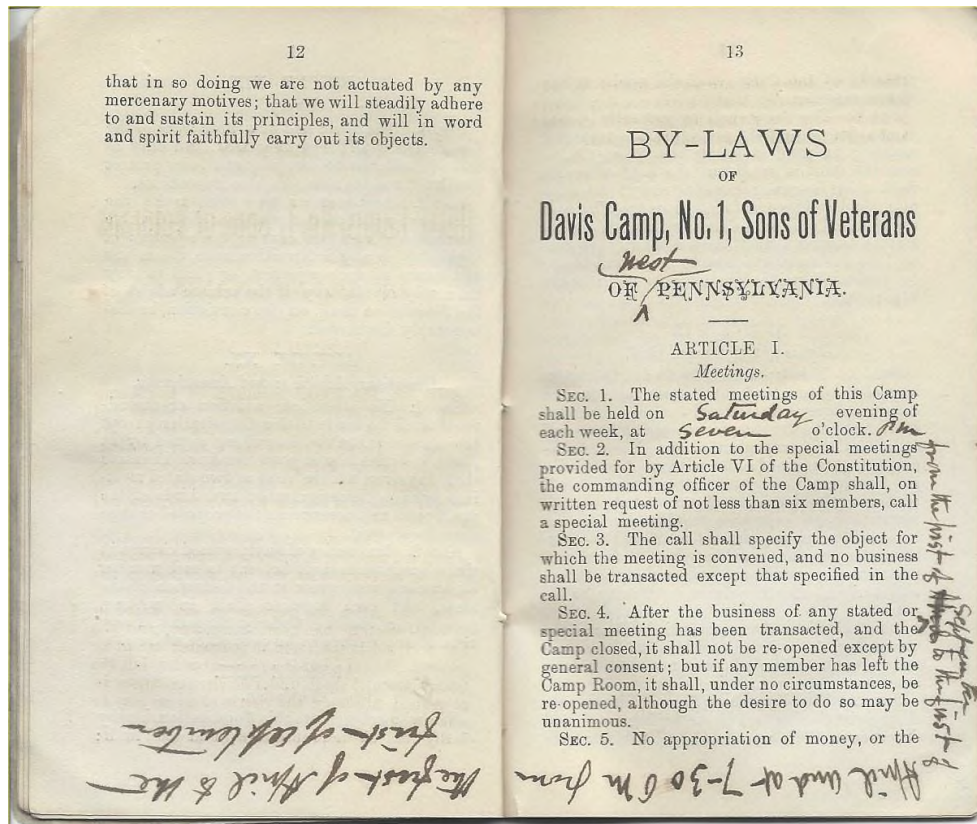 12
that in so doing we are not actuated by any
mercenary motives; that we will steadily adhere
to and sustain its principles, and will in word
and spirit faithfully carry out its objects.
13
BY-LAWS
OF
Davis Camp, No. 1, Sons of Veterans
West
OF PENNSYLVANIA.
ARTICLE I.
Meetings.
SEC. 1. The stated meetings of this Camp
shall be held on Saturday evening of
each week, at Seven o'clock. P m
SEC. 2. In addition to the special meetings
provided for by Article VI of the Constitution,
the commanding officer of the Camp shall, on
written request of not less than six members, call
a special meeting.
SEC. 3. The call shall specify the object for
which the meeting is convened, and no business
shall be transacted except that specified in the
call.
SEC. 4. After the business of any stated or
special meeting has been transacted, and the
Camp closed, it shall not be re-opened except by
general consent; but if any member has left the
Camp Room, it shall, under no circumstances, be
re-opened, although the desire to do so may be
unanimous.
SEC. 5. No appropriation of money, or the
from the first of September to the first of
April and at 7-30 P M from
the first of April to the
first of September